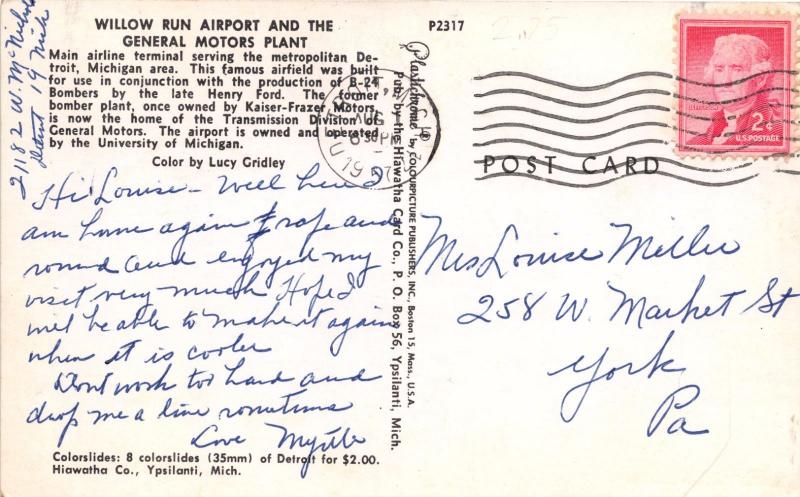 WILLOW RUN AIRPORT AND THE
GENERAL MOTORS PLANT
Main airline terminal serving the metropolitan De-
troit, Michigan area. This famous airfield was built
for use in conjunction with the production of B-24
Bombers by the late Henry Ford. The former
bomber plant, once owned by Kaiser-Frazer Motors,
is now the home of the Transmission Division of
General Motors. The airport is owned and operated
by the University of Michigan.
Color by Lucy Gridley
21182 W. McNichols
Detroit 19 Mich
Hi Louise - Well here I
am home again safe and
round and enjoyed my
visit very much Hope I
will be able to make it again
when it is cooler
Dont work too hard and
drop me a line sometime
Love Myrtle
Colorslides: 8 colorslides (35mm) of Detroit for $2.00.
Hiawatha Co., Ypsilanti, Mich.
P2317
2.25
Plastichrome by COLOURPICTURE PUBLISHERS, INC., Boston 15, Mass., U.S.A.
Pub. by the Hiawatha Card Co., P. O. Box 56, Ypsilanti, Mich.
AUG
6 30 PM
1957
POST CARD
2¢
U.S. POSTAGE
Mrs Louise Miller
258 W. Market St
York
Pa